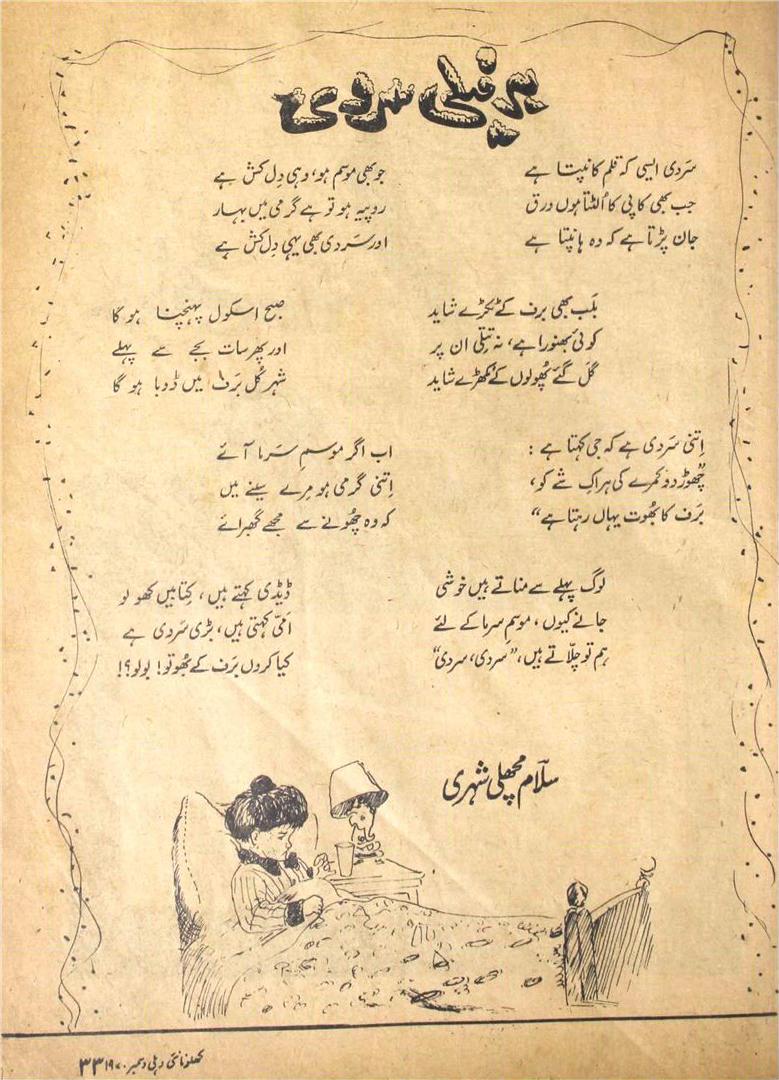 برفیلی سردی
سَردی ایسی کہ قلم کانپتا ہے
جب بھی کاپی کا اُلٹتا ہوں ورق
جان پڑتا ہے کہ وہ ہانپتا ہے
بلب بھی برف کے ٹکڑے شاید
کوئی بھنورا ہے، نہ تتلی ان پر
گل گئے پھُولوں کے مُکھڑے شاید
اِتنی سَردی ہے کہ جی کہتا ہے :
"چھوڑ دو کمرے کی ہر اک شے کو،
بَرف کا بھُوت یہاں رہتا ہے"
لوگ پہلے سے مناتے ہیں خوشی
جانے کیوں، موسمِ سرما کے لئے
ہم تو چلّاتے ہیں، "سردی، سردی"
جو بھی موسم ہو، وہی دِل کش ہے
روپیہ ہو تو ہے گرمی میں بہار
اور سَردی بھی یہی دِل کش ہے
صبح اسکول پہنچنا ہو گا
اور پھر سات بجے سے پہلے
شہر کُل بَرف میں ڈوبا ہو گا
اب اگر موسمِ سَرما آئے
اِتنی گرمی ہو مِرے سینے میں
کہ وہ چھُونے سے مجھے گھبرائے
ڈیڈی کہتے ہیں، کِتابیں کھولو
امّی کہتی ہیں، بڑی سَردی ہے
کیا کروں بَرف کے بھُوتو! بولو؟!
سلاؔم مچھلی شہری
کھلونا نئی دہلی دسمبر ۱۹۷۰ ۳۳